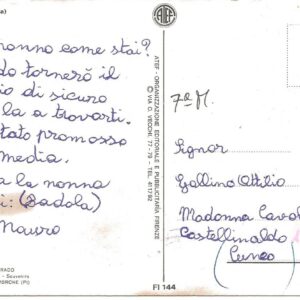 nonno come stai?
do tornerò il
io di sicuro
la a trovarti.
tato promosso
media.
a la nonna
i: (Dadola)
Mauro
RADO
- Souvenirs
FORCHE (PI)
ATEF
ATEF - ORGANIZZAZIONE EDITORIALE E PUBBLICITARIA FIRENZE
VIA D. VECCHI, 77-79 - TEL. 411792
FI 144
7ª M.
Signor
Gallino Attilio
Madonna Caval
Castellinaldo
(Cuneo)